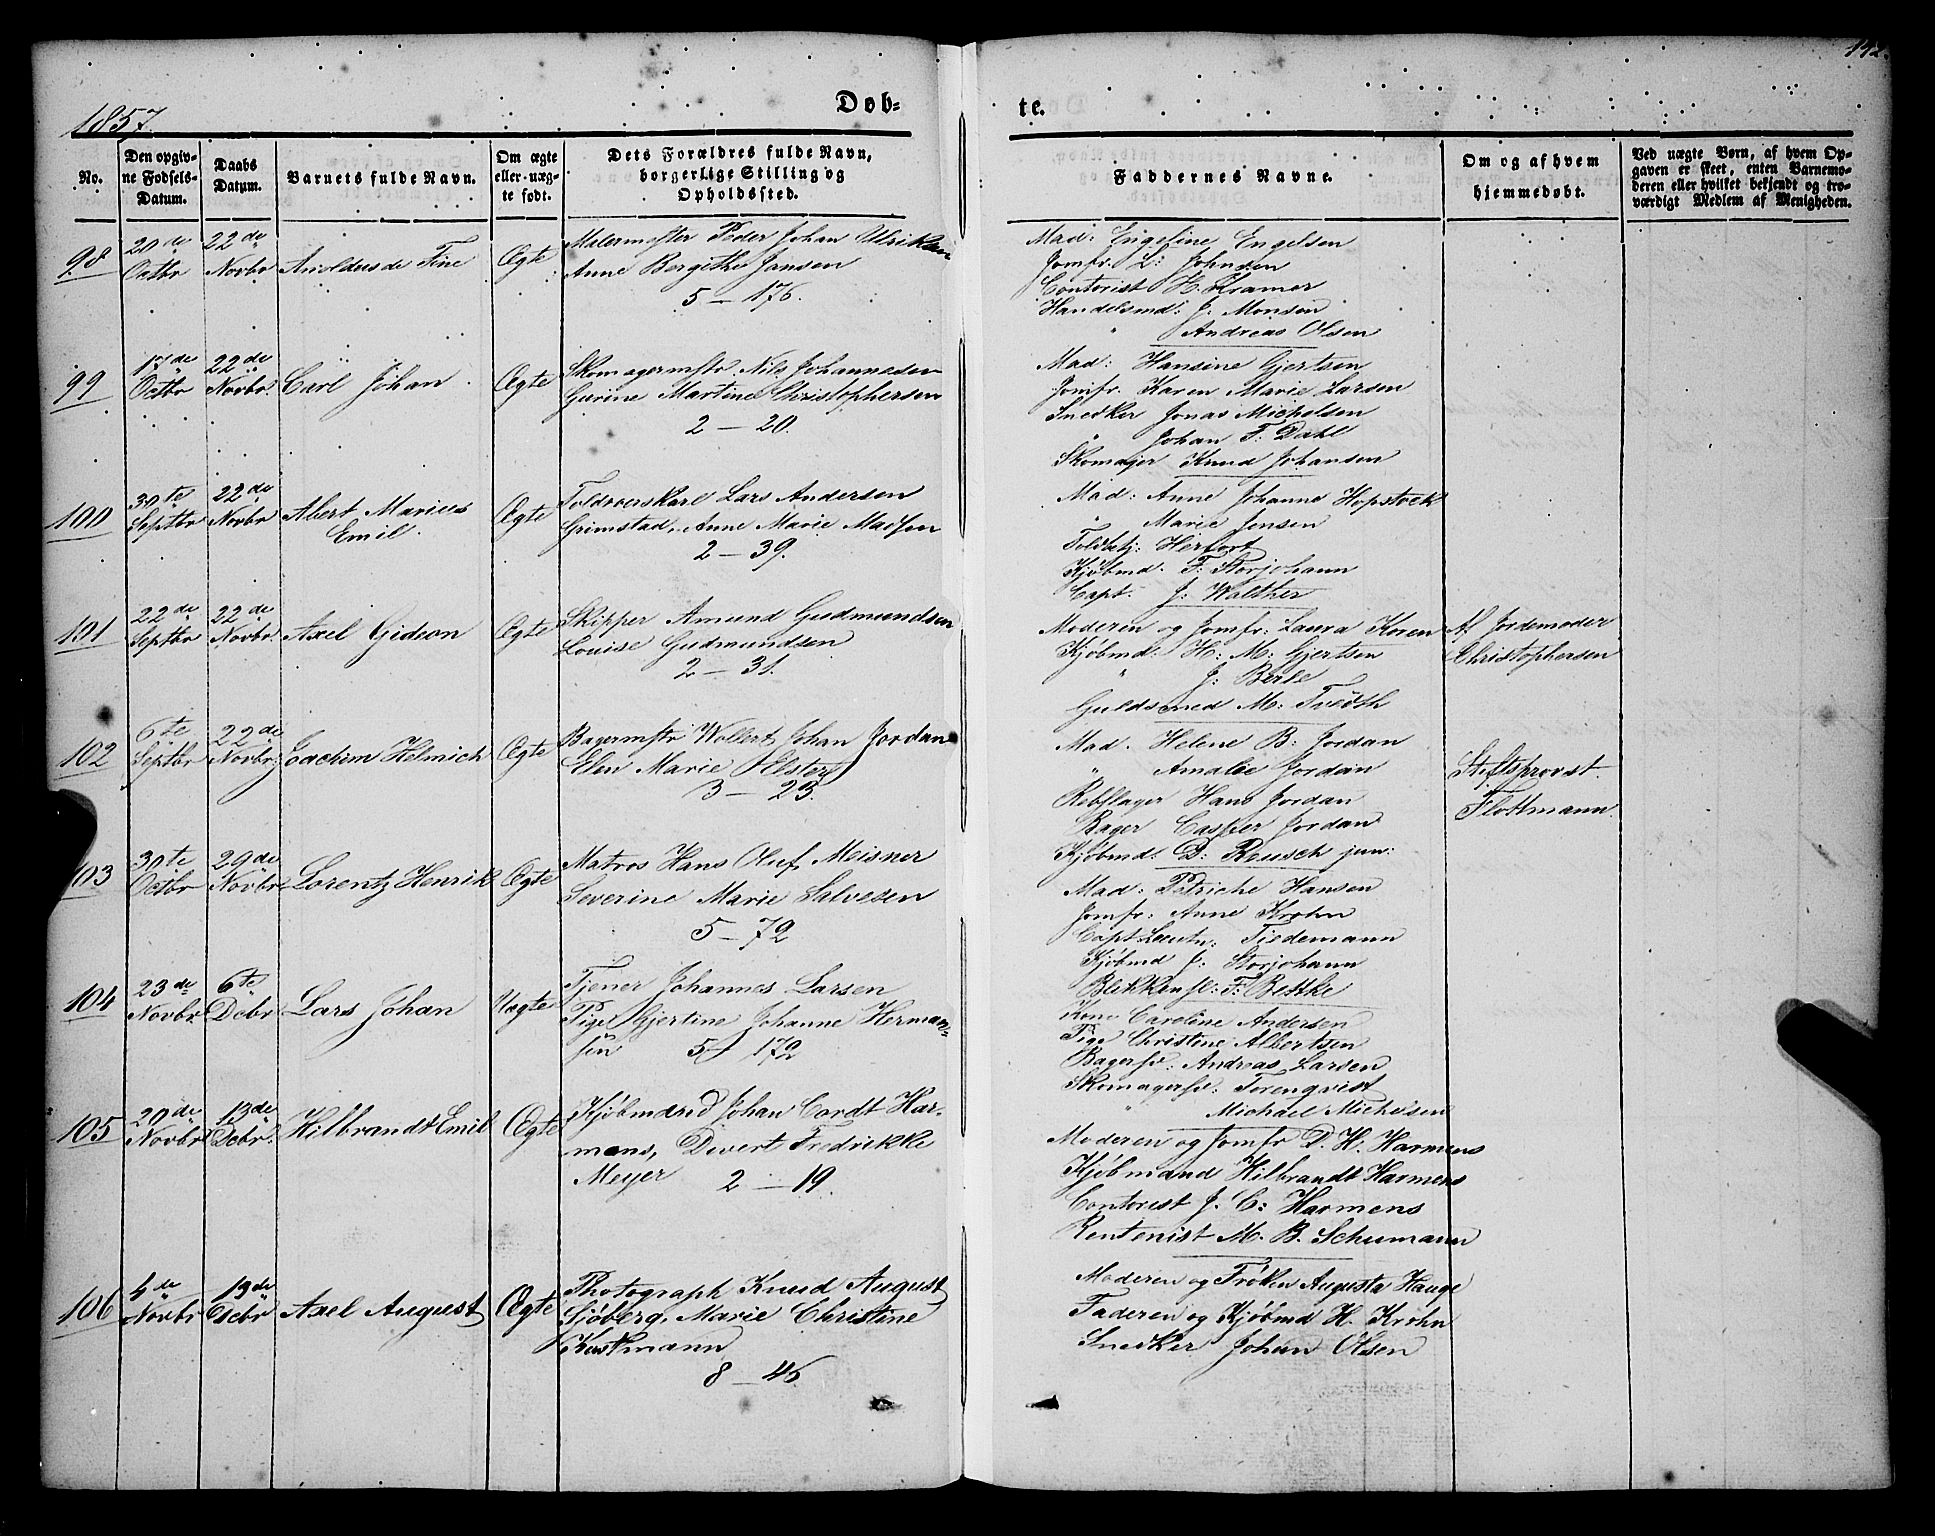 142.
1857.
Døb-
te.
No.
Den opgiv-
ne Fødsels-
Datum.
Daabs
Datum.
Barnets fulde Navn.
Om ægte
eller uæg-
te født.
Dets Forældres fulde Navn,
borgerlige Stilling og
Opholdssted.
Faddernes Navne.
Om og af hvem
hjemmedøbt.
Ved uægte Børn, af hvem Op-
gaven er skeet, enten Barnemo-
deren eller hvilket bekjendt og tro-
værdigt Medlem af Menigheden.
98
20de
Octbr
22de
Novbr
Arnoldus de Fine
Ægte
Malermester Peder Johan Ulriksen
Anne Bergithe Jansen
5 — 176.
Mad: Engeline Engelsen
Jomfr. L: Johnsen
Contorist H. Kramer
Handelsmd: J. Monsen
" Andreas Olsen
99
17de
Octbr
22de
Novbr.
Carl Johan
Ægte
Skomagermstr Nils Johannesen
Gurine Martine Christophersen
2 — 20.
Mad: Hansine Gjertsen
Jomfr. Karen Marie Larsen
Snedker Jonas Michelsen
" Johan F. Dahl
Skomager Knud Johansen
100
30te
Septbr
22de
Novbr
Albert Marius
Emil.
Ægte
Toldroerskarl Lars Andersen
Grimstad, Anne Marie Madsen
2 — 39.
Mad: Anne Johanne Hopstock
" Marie Jensen
Toldbetj: Herfort
Kjøbmd. F: Storjohann
Capt. J: Walther
101
22de
Septbr
22de
Novbr
Axel Gideon
Ægte
Skipper Amund Gudmundsen
Louise Gudmundsen
2 — 31.
Moderen og Jomfr: Laura Koren
Kjøbmd: H: M: Gjertsen
" J: Berle
Guldsmed M: Tvedth
Af Jordemoder
Christophersen
102
6te
Septbr
22de
Novbr.
Joachim Helmich
Ægte
Bagermstr Wollert Johan Jordan
Elen Marie Elster
3 — 23.
Mad. Helene B: Jordan
" Amalie Jordan
Rebslager Hans Jordan
Bager Casper Jordan
Kjøbmd: D: Reusch jun:
Stiftsprovst.
Flottmann.
103
30te
Octbr
29de
Novbr
Lorentz Henrik
Ægte
Matros Hans Oluf Meisner
Severine Marie Salvesen
5 — 72
Mad: Petriche Hansen
Jomfr: Anne Krohn
Capt Leutn: Tiedemann
Kjøbmd J: Storjohann
Blikkensl: F: Bettke
104
23de
Novbr.
6te
Debr
Lars Johan
Uægte
Tjener Johannes Larsen
Pige Gjertine Johanne Herman-
sen 5 — 172
Kone Caroline Andersen
Pige Christine Albertsen
Bagersv: Andreas Larsen
Skomagersv: Torenqvist
" Michael Michelsen
105
20de
Novbr
13de
Debr.
Hilbrandt Emil
Ægte
Kjøbmand Johan Cordt Har-
mens, Divert Fredrikke
Meyer 2 — 19.
Moderen og Jomfr D. H. Harmens
Kjøbmand Hilbrandt Harmens
Contorist J. C: Harmens
Rentenist M. B. Schumann
106
4de
Novbr
13de
Decbr
Axel August
Ægte
Photograph Knud August
Sjøberg, Marie Christine
8 — 46.
Moderen og Frøken Augusta Hauge
Faderen og Kjøbmd H. Krohn
Snedker Johan Olsen